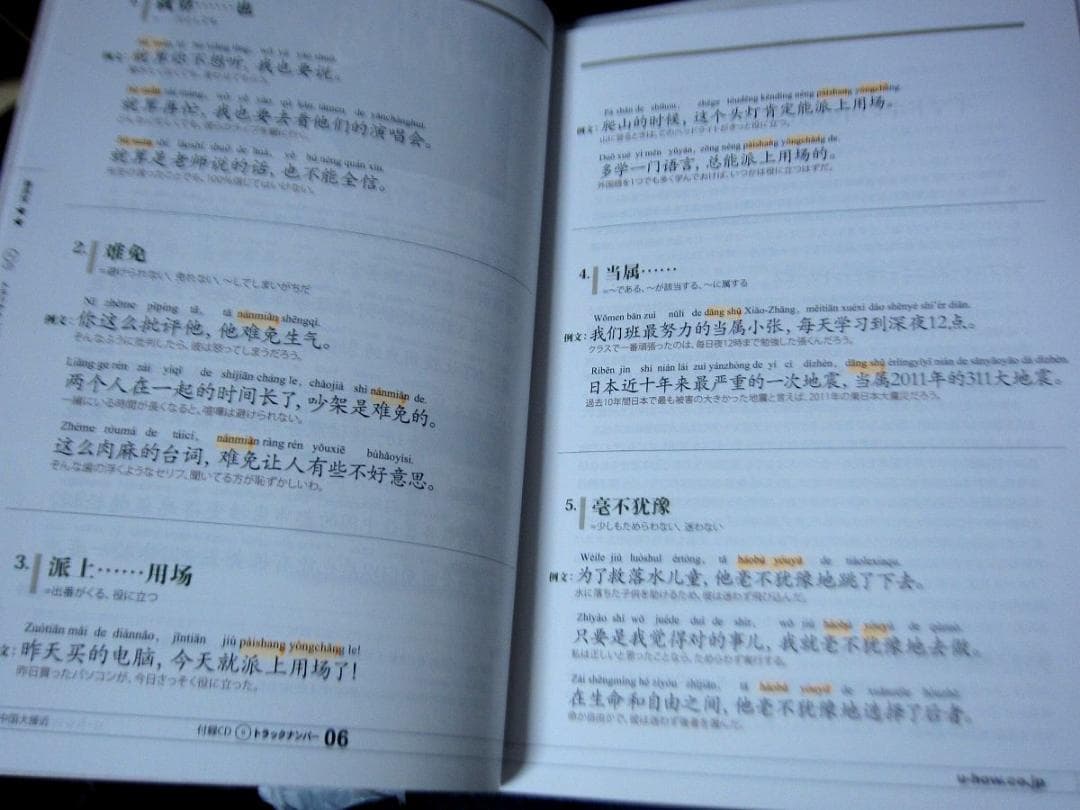 就算……也
例文: 就算你不想听, 我也要说。
jiùsuàn zài máng, wǒ yě yào qù kàn tāmen de yǎnchànghuì.
就算再忙, 我也要去看他们的演唱会。
jiùsuàn shì lǎoshī shuō de huà, yě bù néng quán xìn.
就算是老师说的话, 也不能全信。
先生の言ったことでも、100%信じてはいけない。
2. 难免
=避けられない、免れない、～してしまいがちだ
Nǐ zhème pīpíng tā, tā nánmiǎn shēngqì.
例文: 你这么批评他, 他难免生气。
そんなふうに批判したら、彼は怒ってしまうだろう。
Liǎng ge rén zài yìqǐ de shíjiān cháng le, chǎojià shì nánmiǎn de.
两个人在一起的时间长了, 吵架是难免的。
一緒にいる時間が長くなると、喧嘩は避けられない。
Zhème ròumá de táicí, nánmiǎn ràng rén yǒuxiē bùhǎoyìsi.
这么肉麻的台词, 难免让人有些不好意思。
そんな歯の浮くようなセリフ、聞いてる方が恥ずかしいわ。
3. 派上……用场
=出番がくる、役に立つ
Zuótiān mǎi de diànnǎo, jīntiān jiù pàishang yòngchǎng le!
文: 昨天买的电脑, 今天就派上用场了!
昨日買ったパソコンが、今日さっそく役に立った。
中国大接近
付録CD トラックナンバー 06
Pá shān de shíhou, zhège tóudēng kěndìng néng pàishang yòngchǎng.
例文: 爬山的时候, 这个头灯肯定能派上用场。
山に登るときは、このヘッドライトがきっと役に立つ。
Duō xué yì mén yǔyán, zǒng néng pàishang yòngchǎng de.
多学一门语言, 总能派上用场的。
外国語を1つでも多く学んでおけば、いつかは役に立つはずだ。
4. 当属……
=～である、～が該当する、～に属する
Wǒmen bān zuì nǔlì de dāng shǔ Xiǎo-Zhāng, měitiān xuéxí dào shēnyè shí'èr diǎn.
例文: 我们班最努力的当属小张, 每天学习到深夜12点。
クラスで一番頑張ったのは、毎日夜12時まで勉強した張くんだろう。
Rìběn jìn shí nián lái zuì yánzhòng de yí cì dìzhèn, dāng shǔ èrlíngyīyī nián de sānyāoyāo dà dìzhèn.
日本近十年来最严重的一次地震, 当属2011年的311大地震。
過去10年間日本で最も被害の大きかった地震と言えば、2011年の東日本大震災だろう。
5. 毫不犹豫
=少しもためらわない、迷わない
Wèile jiù luòshuǐ értóng, tā háobù yóuyù de tiàolexiaqu.
例文: 为了救落水儿童, 他毫不犹豫地跳了下去。
水に落ちた子供を助けるため、彼は迷わず飛び込んだ。
Zhǐyào shì wǒ juéde duì de shìr, wǒ jiù háobù yóuyù de qùzuò.
只要是我觉得对的事儿, 我就毫不犹豫地去做。
私は正しいと思ったことなら、ためらわず実行する。
Zài shēngmìng hé zìyóu zhījiān, tā háobù yóuyù de xuǎnzéle hòuzhě.
在生命和自由之间, 他毫不犹豫地选择了后者。
命か自由かで、彼は迷わず後者を選んだ。
u-how.co.jp